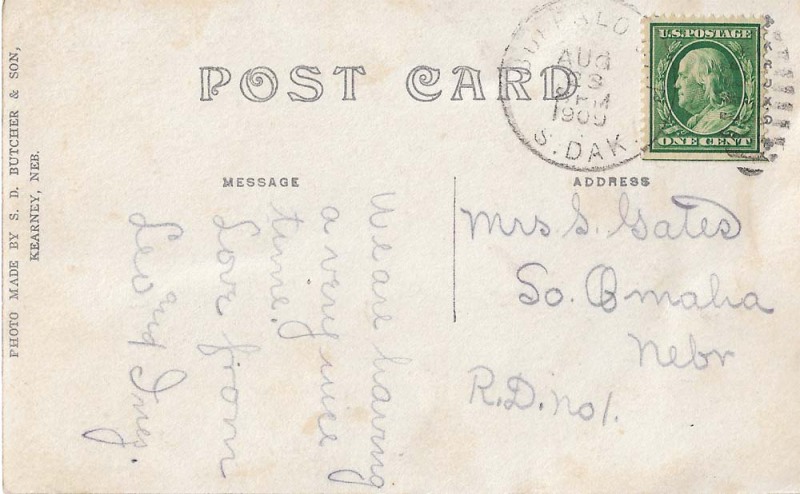 POST CARD
BUFFALO
AUG
23
PM
1909
S. DAK.
U.S. POSTAGE
ONE CENT
PHOTO MADE BY S. D. BUTCHER & SON,
KEARNEY, NEB.
MESSAGE
We are having
a very nice
time.
Love from
Leo and Inez.
ADDRESS
Mrs S. Gates
So. Omaha
Nebr
R.D. No 1.